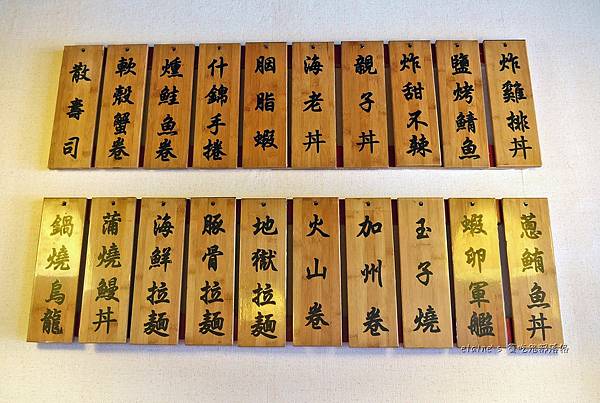 散壽司
軟殼蟹卷
燻鮭魚卷
什錦手捲
胭脂蝦
海老丼
親子丼
炸甜不辣
鹽烤鯖魚
炸雞排丼
鍋燒烏龍
蒲燒鰻丼
海鮮拉麵
豚骨拉麵
地獄拉麵
火山卷
加州卷
玉子燒
蝦卵軍艦
蔥鮪魚丼